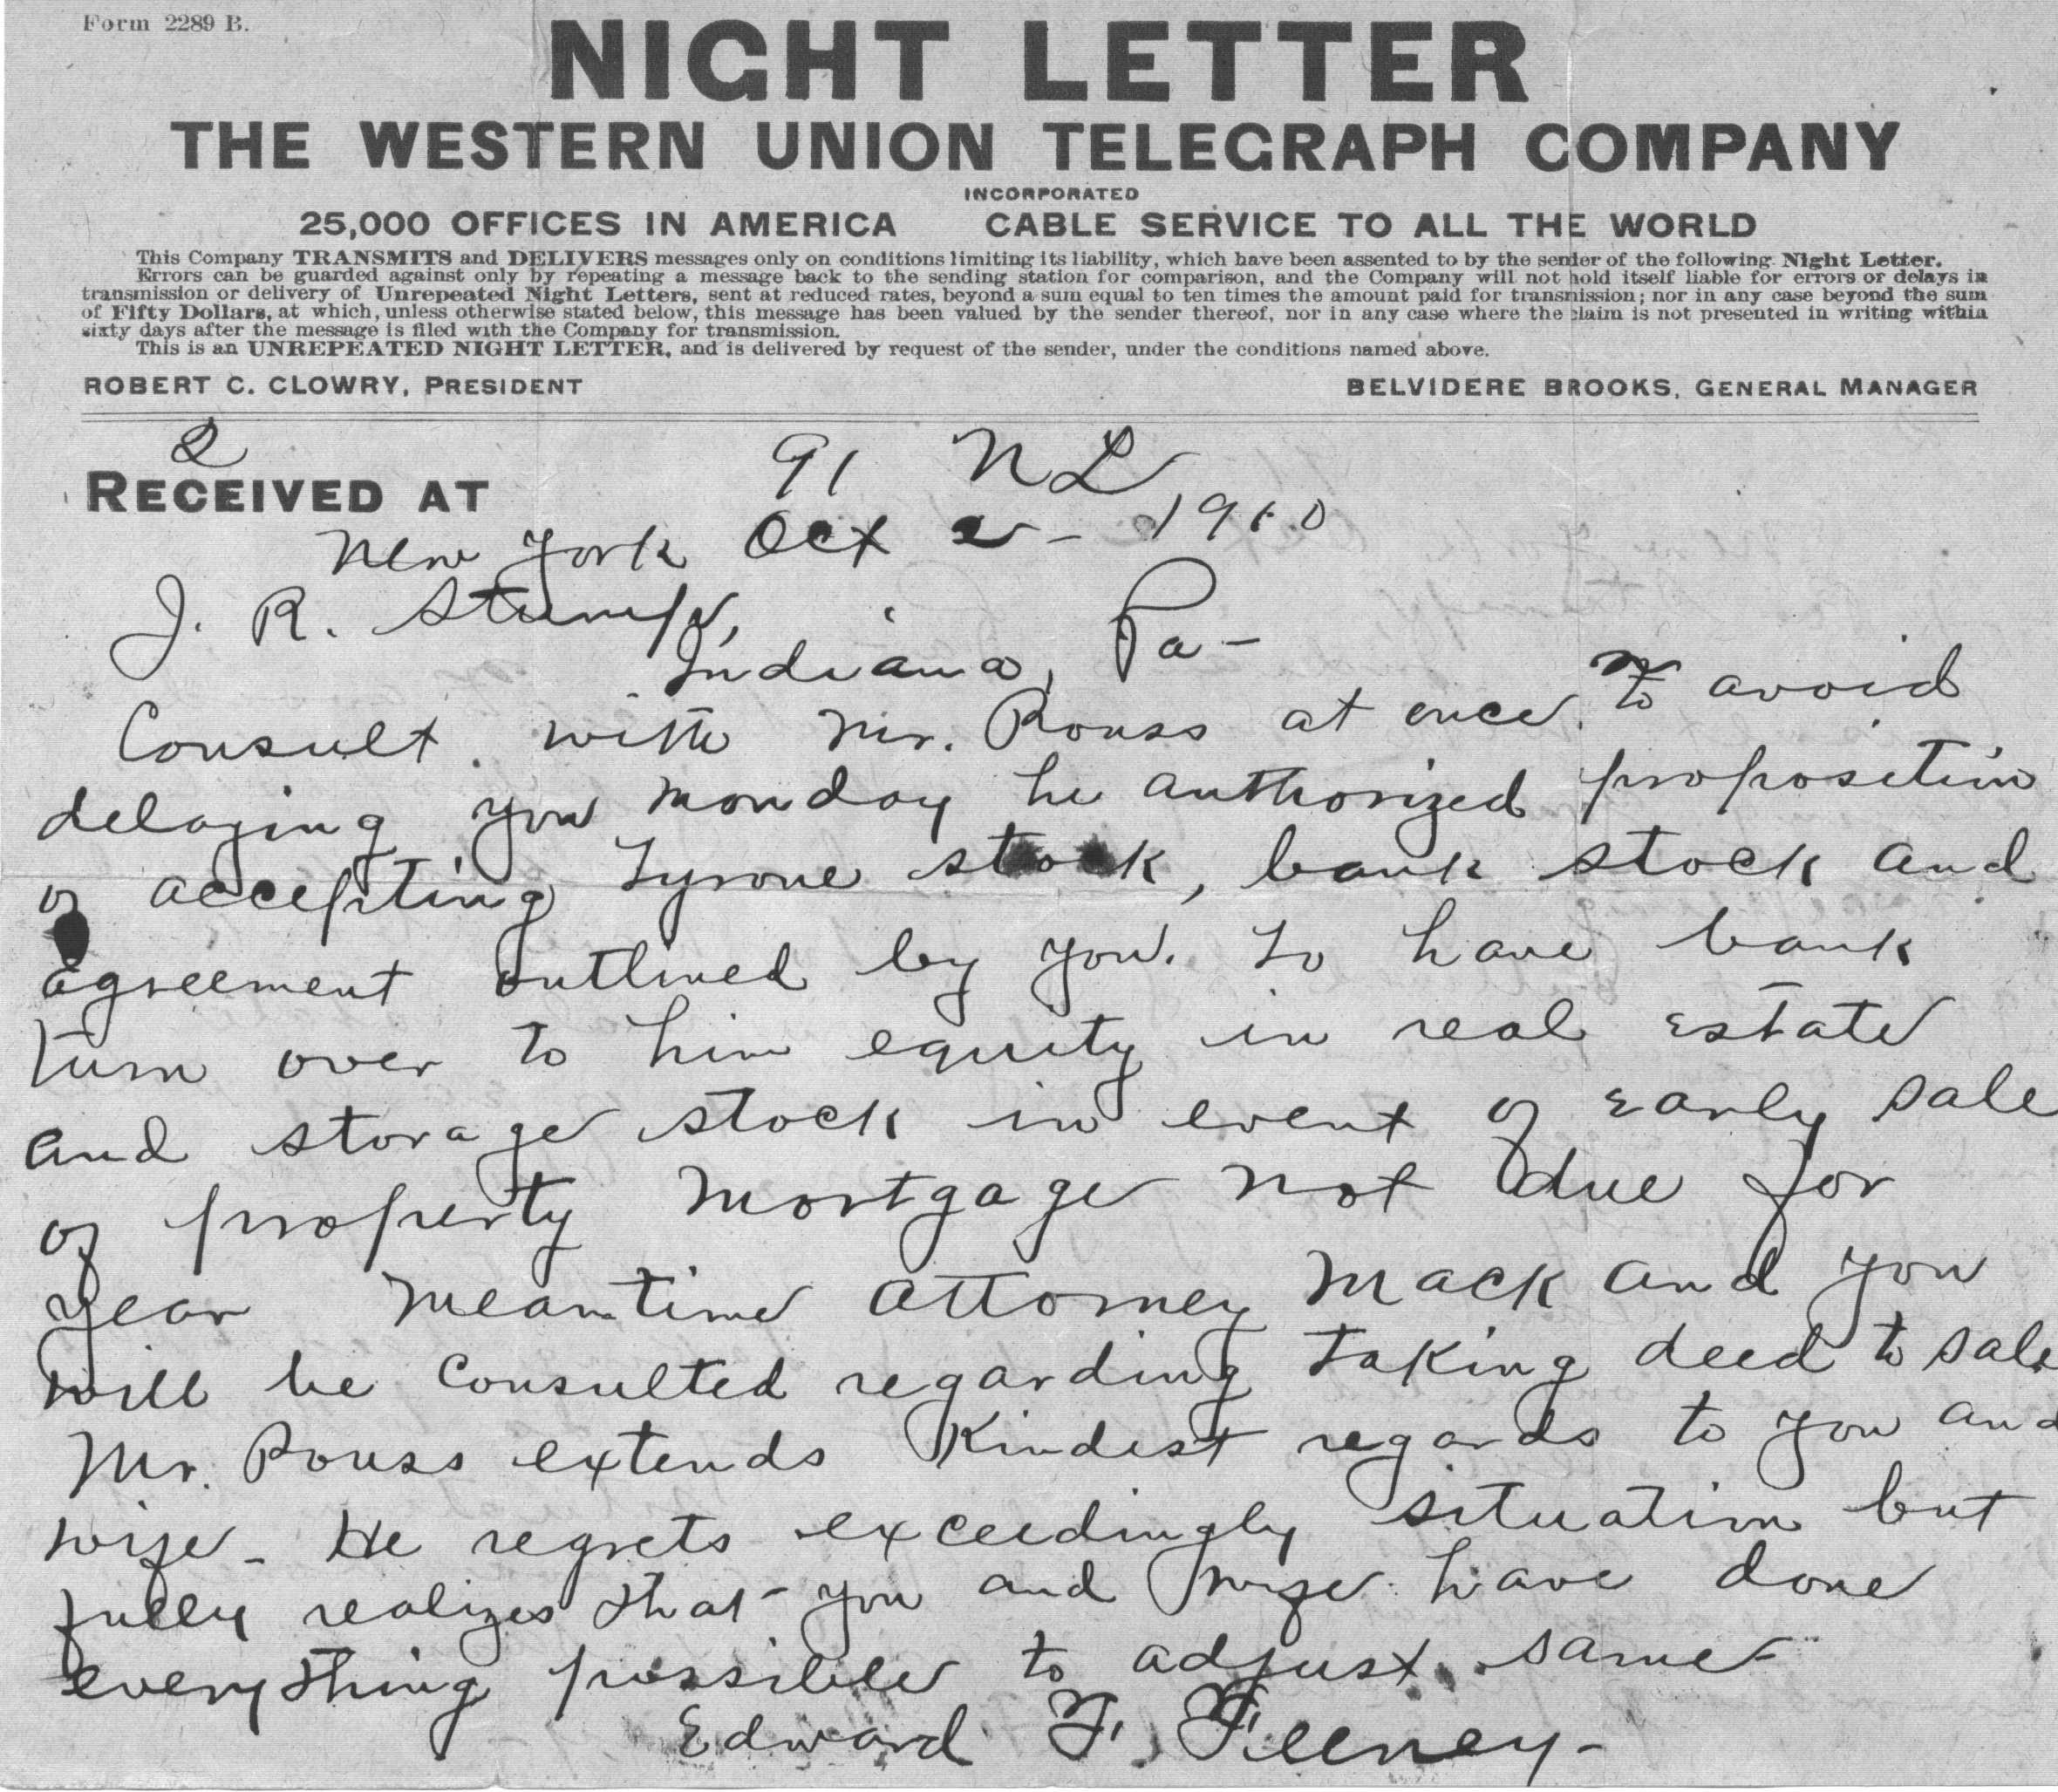 Form 2289 B.
NIGHT LETTER
THE WESTERN UNION TELEGRAPH COMPANY
INCORPORATED
25,000 OFFICES IN AMERICA CABLE SERVICE TO ALL THE WORLD
This Company TRANSMITS and DELIVERS messages only on conditions limiting its liability, which have been assented to by the sender of the following Night Letter.
Errors can be guarded against only by repeating a message back to the sending station for comparison, and the Company will not hold itself liable for errors or delays in
transmission or delivery of Unrepeated Night Letters, sent at reduced rates, beyond a sum equal to ten times the amount paid for transmission; nor in any case beyond the sum
of Fifty Dollars, at which, unless otherwise stated below, this message has been valued by the sender thereof, nor in any case where the claim is not presented in writing within
sixty days after the message is filed with the Company for transmission.
This is an UNREPEATED NIGHT LETTER, and is delivered by request of the sender, under the conditions named above.
ROBERT C. CLOWRY, PRESIDENT BELVIDERE BROOKS, GENERAL MANAGER
91 NL
RECEIVED AT
New York Oct 2 - 1910
J. R. Stumpf,
Indiana, Pa -
Consult with Mr. Rouss at once. To avoid
delaying you Monday he authorized proposition
of accepting Tyrone stock, bank stock and
agreement outlined by you. To have bank
turn over to him equity in real estate
and storage stock in event of early sale
of property mortgage not due for
year meantime attorney Mack and you
will be consulted regarding taking deed to sale
Mr. Rouss extends kindest regards to you and
wife - He regrets exceedingly situation but
fully realizes that you and wife have done
everything possible to adjust same
Edward F. Feeney -